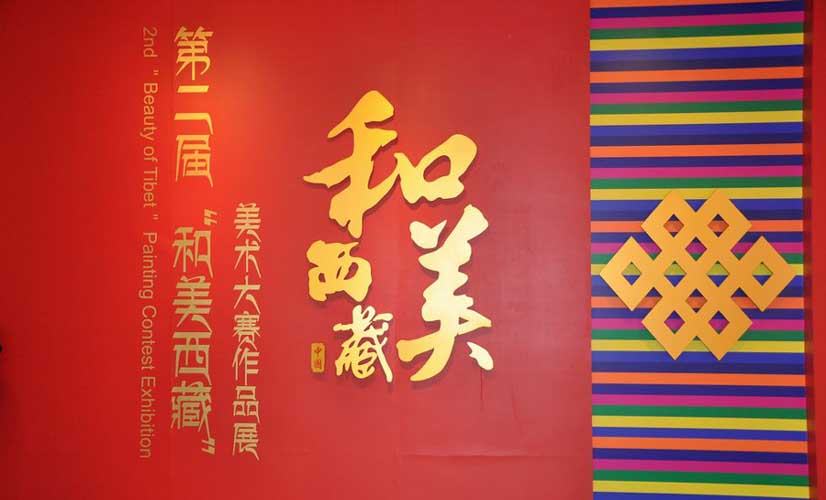 第二届“和美西藏”
美术大赛作品展
2nd "Beauty of Tibet" Painting Contest Exhibition
和美
西藏
中国